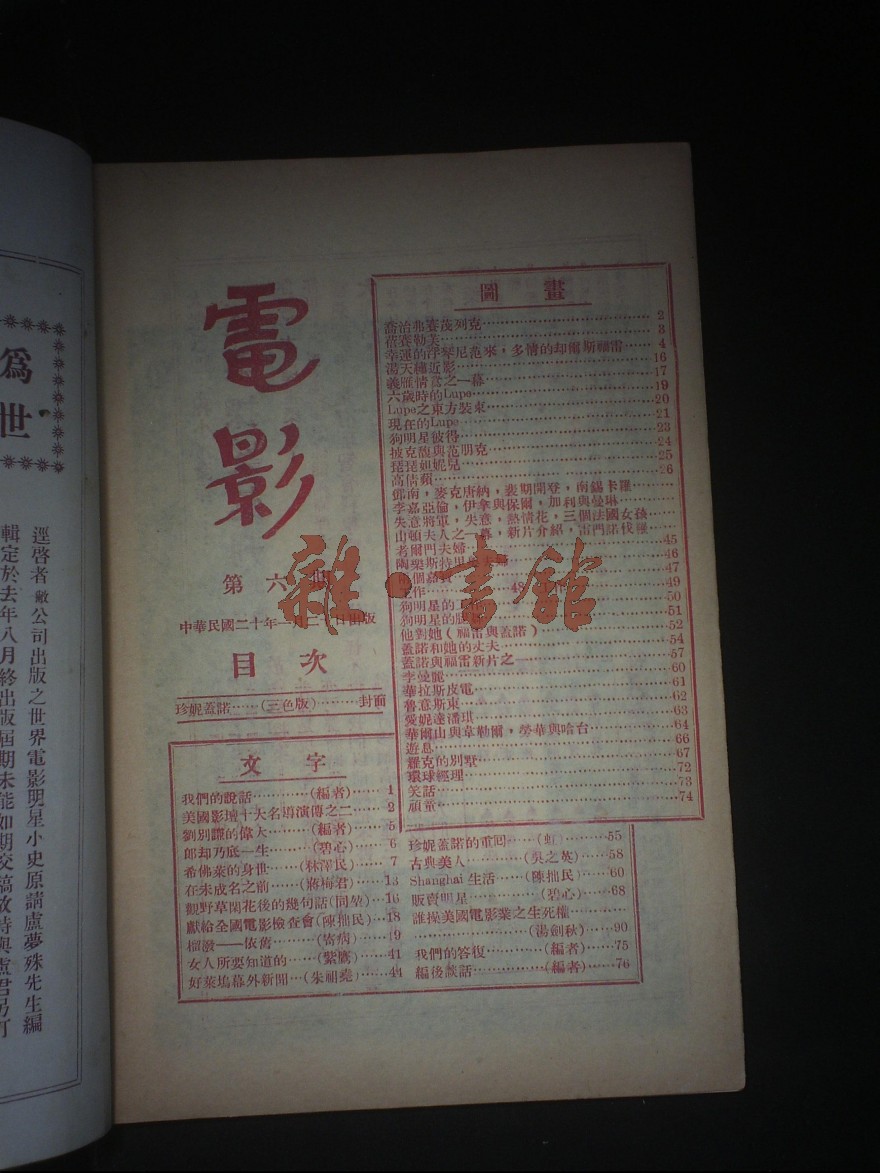 電影
第六期
中華民國二十年一月二
日出版
目次
珍妮蓋諾……(三色版)………封面
圖畫
喬治弗賽茂列克………2
蓓賽勒芙………3
幸運的浮琴尼范來，多情的却爾斯福雷………4
湯天繡近影………16
義雁情鴛之一幕………17
六歲時的Lupe………19
Lupe之東方裝束………20
現在的Lupe………21
狗明星彼得………23
披克馥與范朋克………24
琵琵妲妮兒………25
高倩蘋………26
鄧南，麥克唐納，裴期開登，南錫卡羅
李嘉亞倫，伊拿與保爾，加利與曼琳
失意將軍，失意，熱情花，三個法國女孩
山頓夫人之一幕，新片介紹，雷門諾伐羅
老爾門夫婦………45
陶樂斯特里
46
個嘉
47
工作………48
49
狗明星的
50
狗明星的
51
他對她(福雷與蓋諾)………52
蓋諾和她的丈夫………54
蓋諾與福雷新片之………57
李曼麗………60
華拉斯皮電………61
魯意斯東………62
愛妮達潘琪………63
華爾山與韋勒爾，勞華與哈台………64
遊息………66
羅克的別墅………67
環球經理………72
笑話………73
頑童………74
文字
我們的說話……(編者)……1
美國影壇十大名導演傳之二……2
劉別謙的偉大……(編者)……5
郎却乃底一生……(碧心)……6
希佛萊的身世……(林澤民)……7
在未成名之前……(蔣梅君)……13
觀野草閑花後的幾句話(同
)…16
獻給全國電影檢查會(陳拙民)…18
榴潑——依舊……(寄病)……19
女人所要知道的……(紫鷹)……41
好萊塢幕外新聞…(朱祖堯)……44
珍妮蓋諾的重回……(虹)……55
古典美人………(吳之英)……58
Shanghai 生活……(陳拙民)……60
販賣明星………(碧心)……68
誰操美國電影業之生死權………
………(湯劍秋)……90
我們的答復………(編者)……75
編後談話………(編者)……76
爲
世
逕啓者敝公司出版之世界電影明星小史原請盧夢殊先生編
輯定於去年八月終出版屆期未能如期交稿故特與盧君另訂
雜·書館